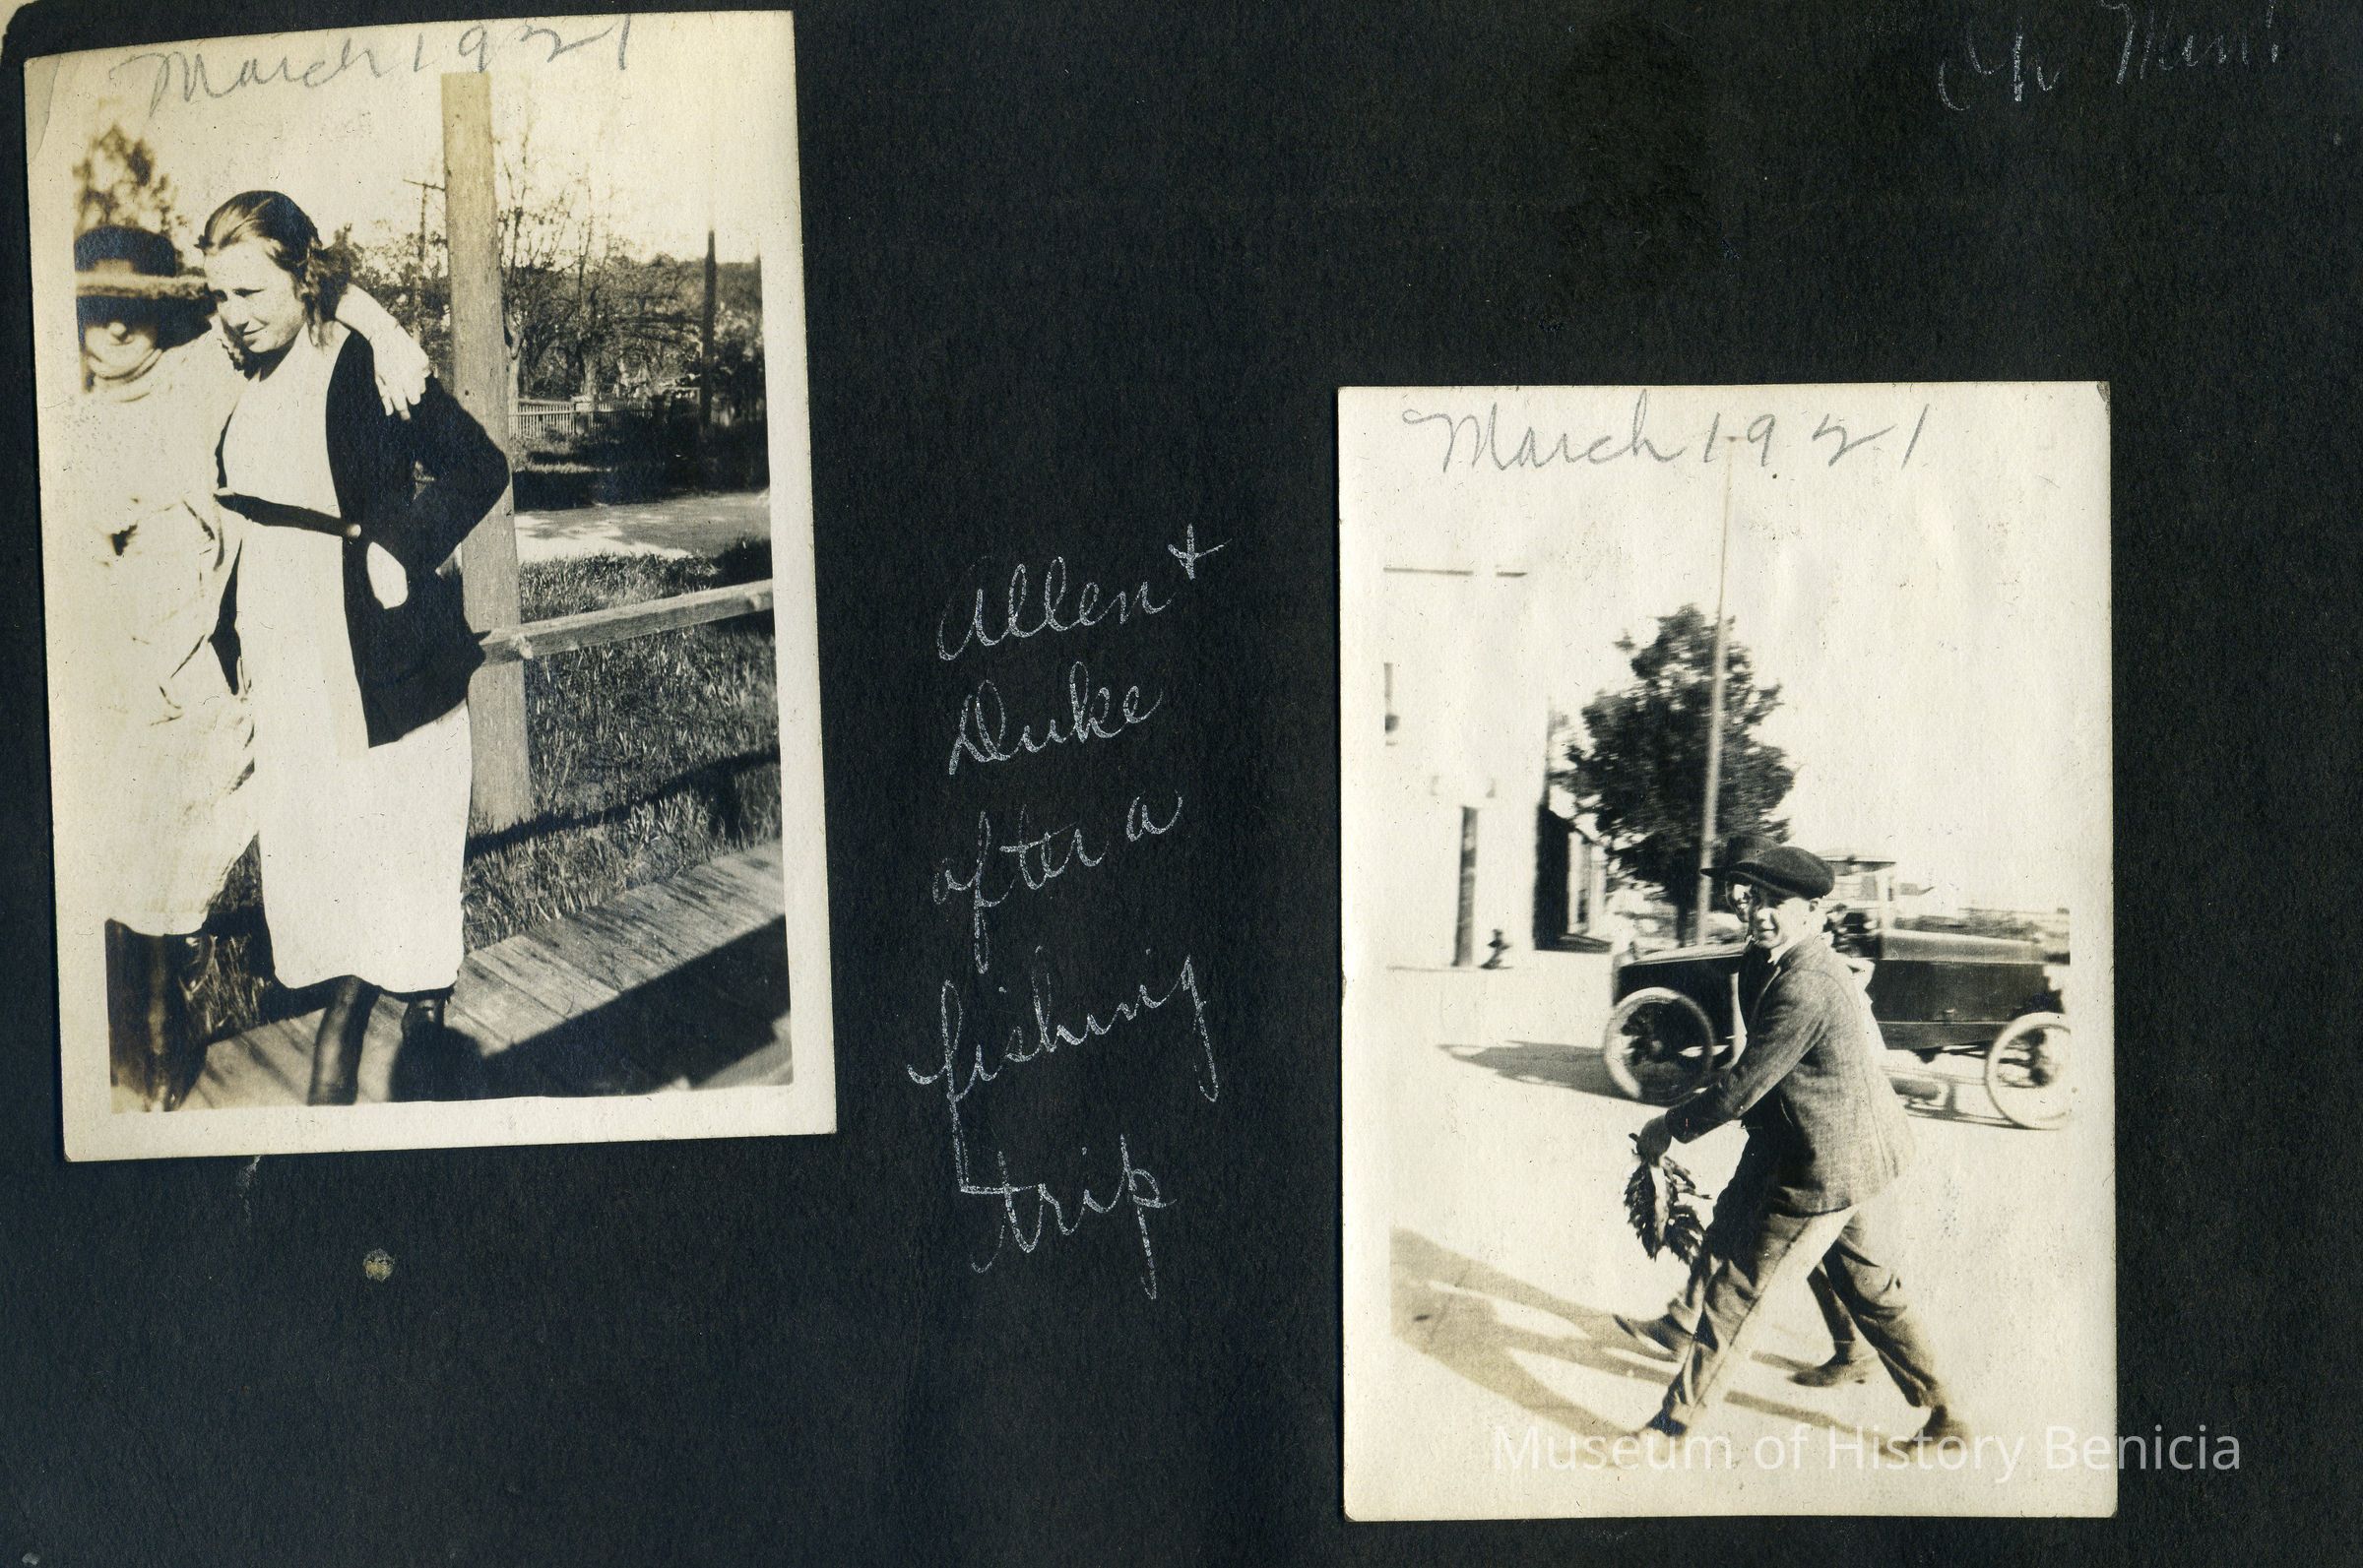 March 1921
Allen +
Duke
after a
fishing
trip
March 1921
Museum of History Benicia